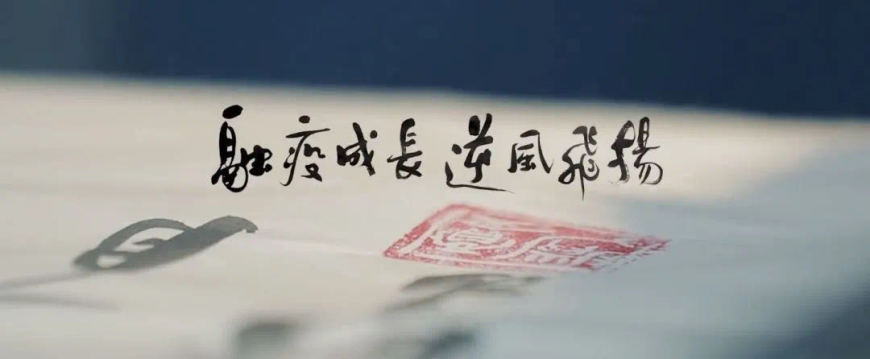 融疫成長 逆風飛揚